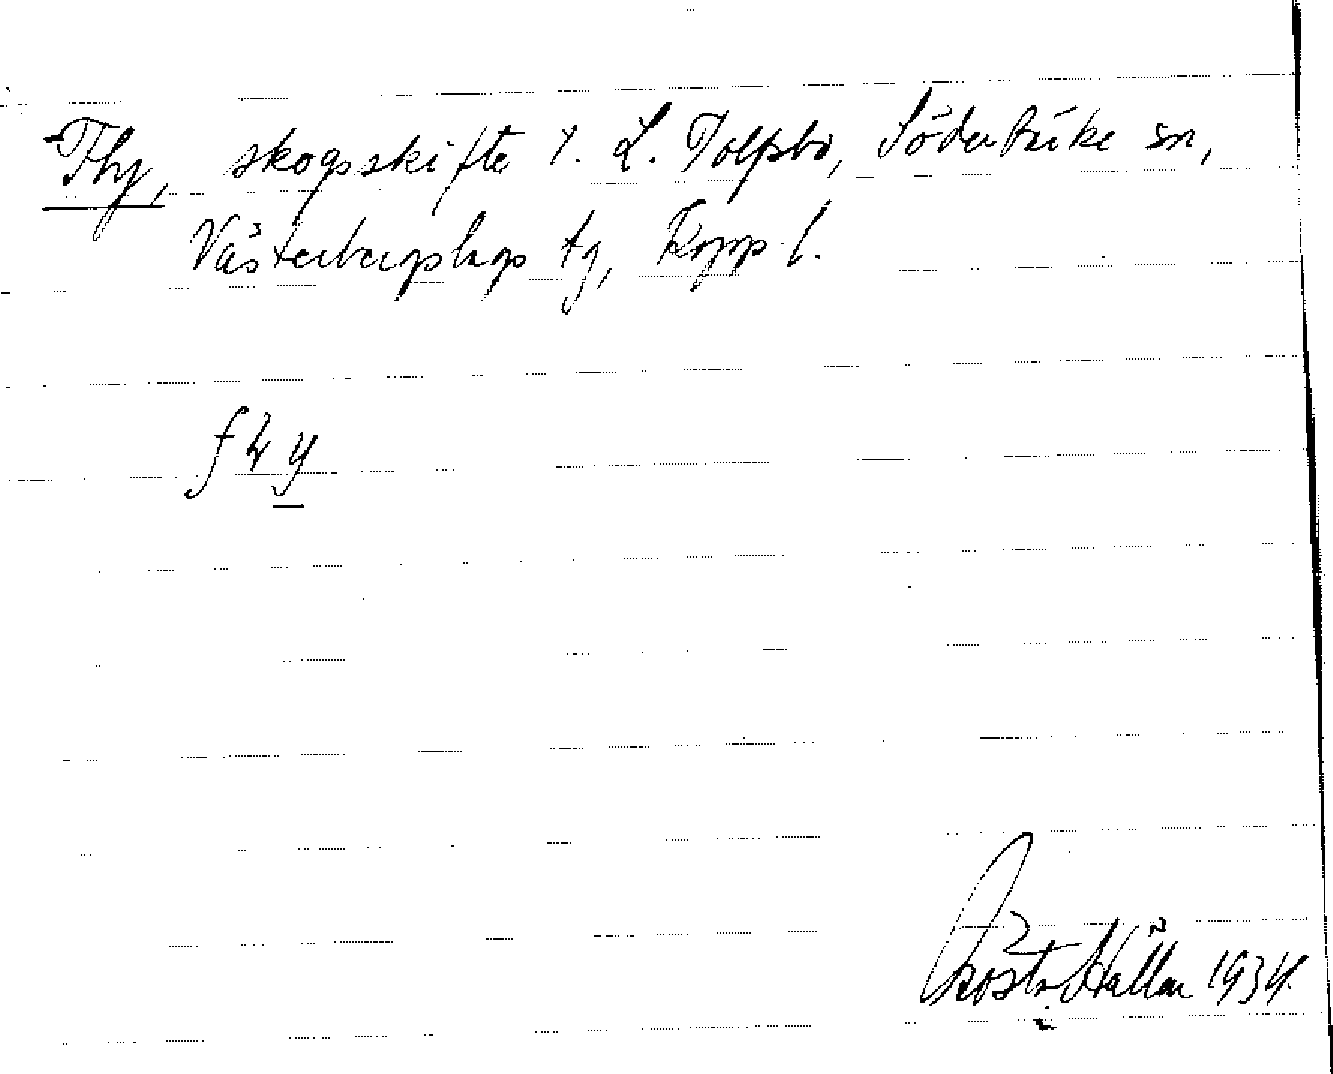 Fhy, skogsskifte i. L. Tolfsbo, Söderbärke sn,
Västerbergslags tg, Kopp l.
fhy
Gösta Hallen 1934.